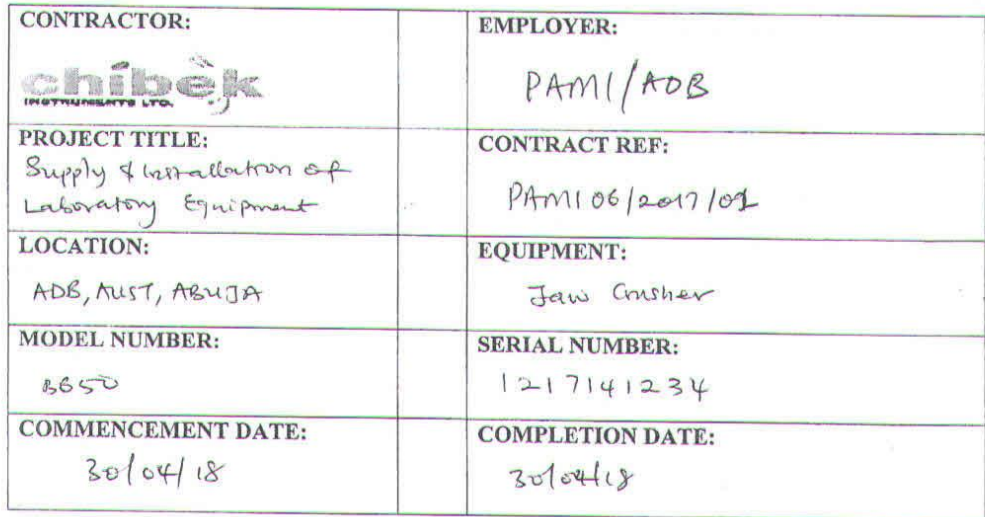 CONTRACTOR:
chibèk
INSTRUMENTS LTD.
EMPLOYER:
PAMI/ADB
PROJECT TITLE:
Supply & Installation of
Laboratory Equipment
CONTRACT REF:
PAMI 06/2017/01
LOCATION:
ADB, AUST, ABUJA
EQUIPMENT:
Jaw Crusher
MODEL NUMBER:
BB50
SERIAL NUMBER:
1217141234
COMMENCEMENT DATE:
30/04/18
COMPLETION DATE:
30/04/18